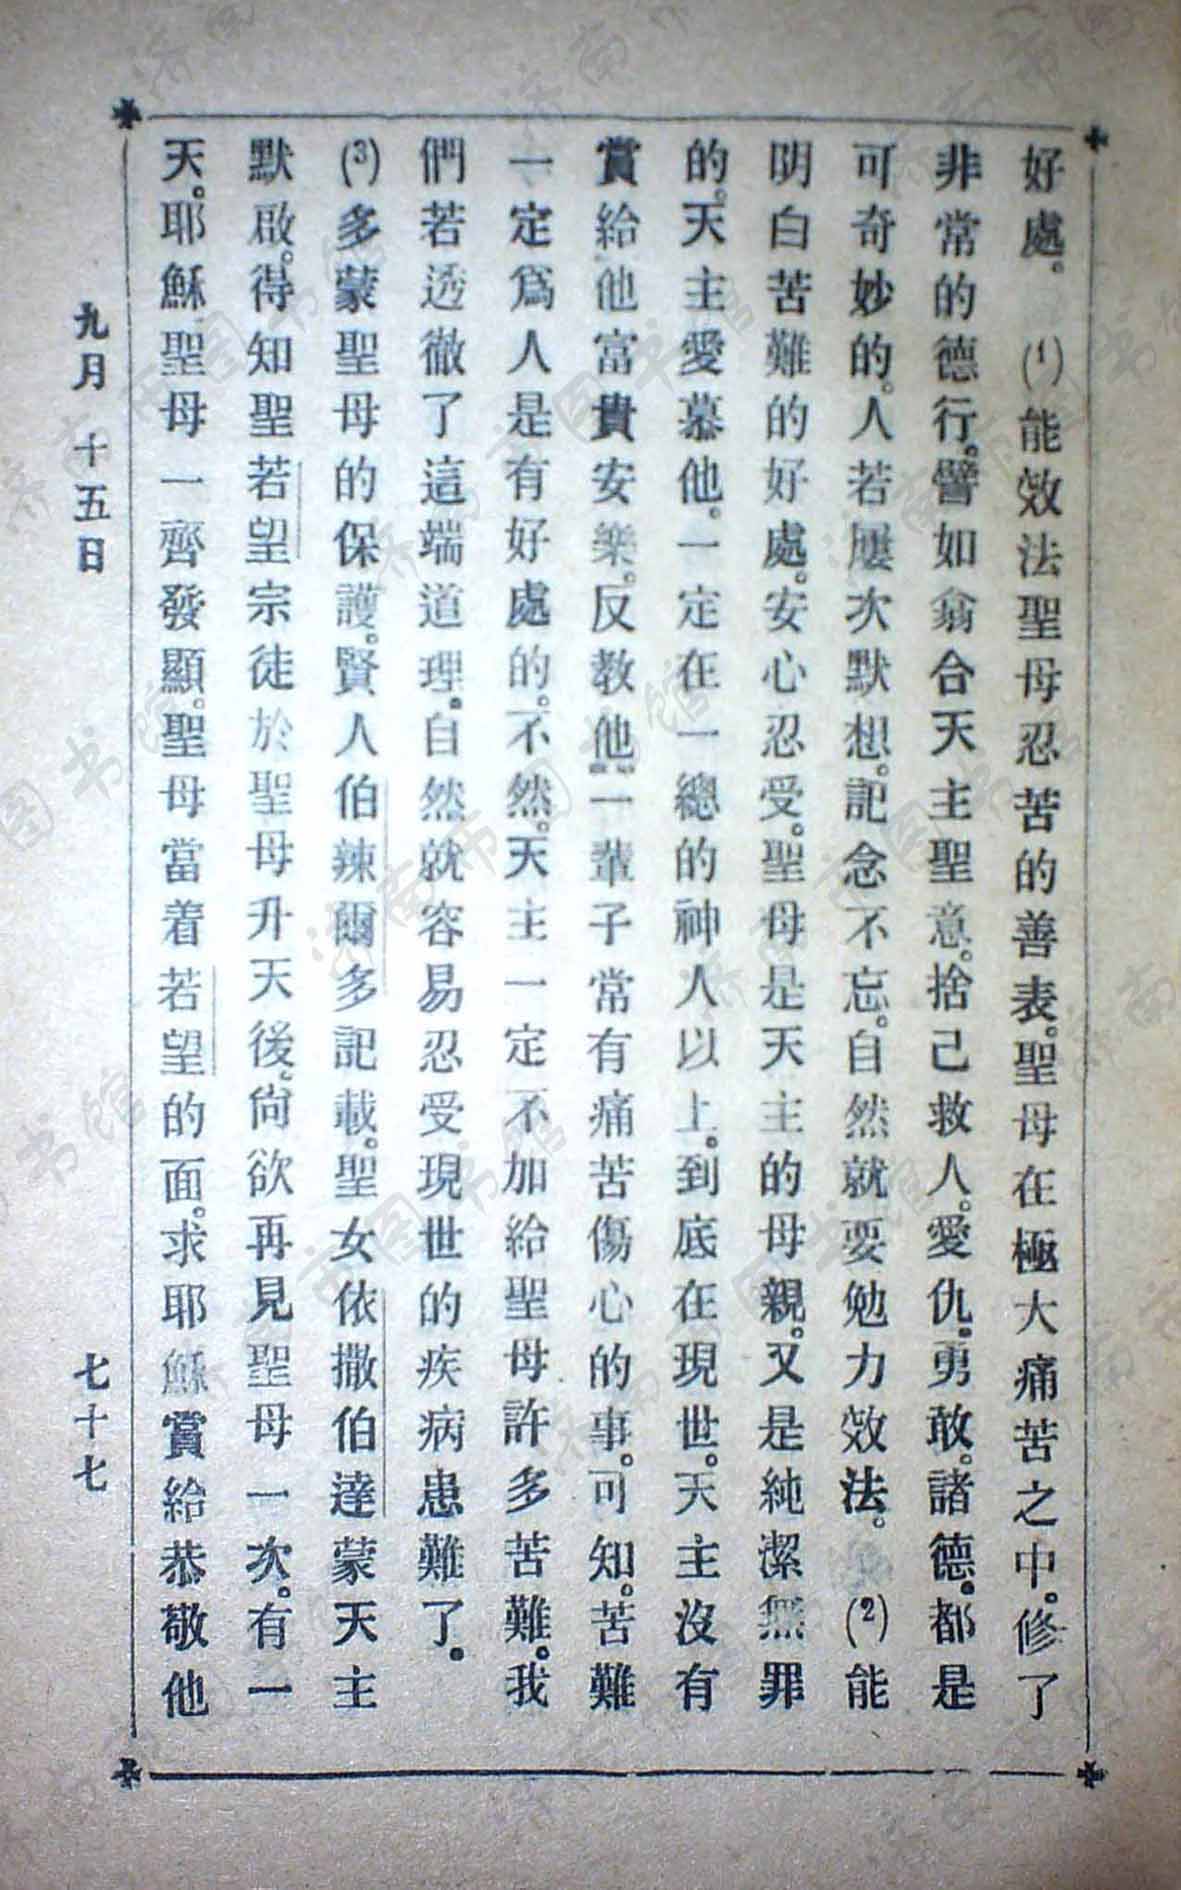 好處。(1)能效法聖母忍苦的善表。聖母在極大痛苦之中。修了
非常的德行。譬如翕合天主聖意。捨己救人。愛仇。勇敢。諸德。都是
可奇妙的。人若屢次默想。記念不忘。自然就要勉力效法。(2)能
明白苦難的好處。安心忍受。聖母是天主的母親。又是純潔無罪
的。天主愛慕他。一定在一總的神人以上。到底在現世。天主沒有
賞給他富貴安樂。反教他一輩子常有痛苦傷心的事。可知。苦難
一定爲人是有好處的。不然。天主一定不加給聖母許多苦難。我
們若透徹了這端道理。自然就容易忍受現世的疾病患難了。
(3)多蒙聖母的保護。賢人伯辣爾多記載。聖女依撒伯達蒙天主
默啟。得知聖若望宗徒於聖母升天後。尙欲再見聖母一次。有一
天。耶穌聖母一齊發顯。聖母當着若望的面。求耶穌賞給恭敬他
九月十五日 七十七
济南市图书馆